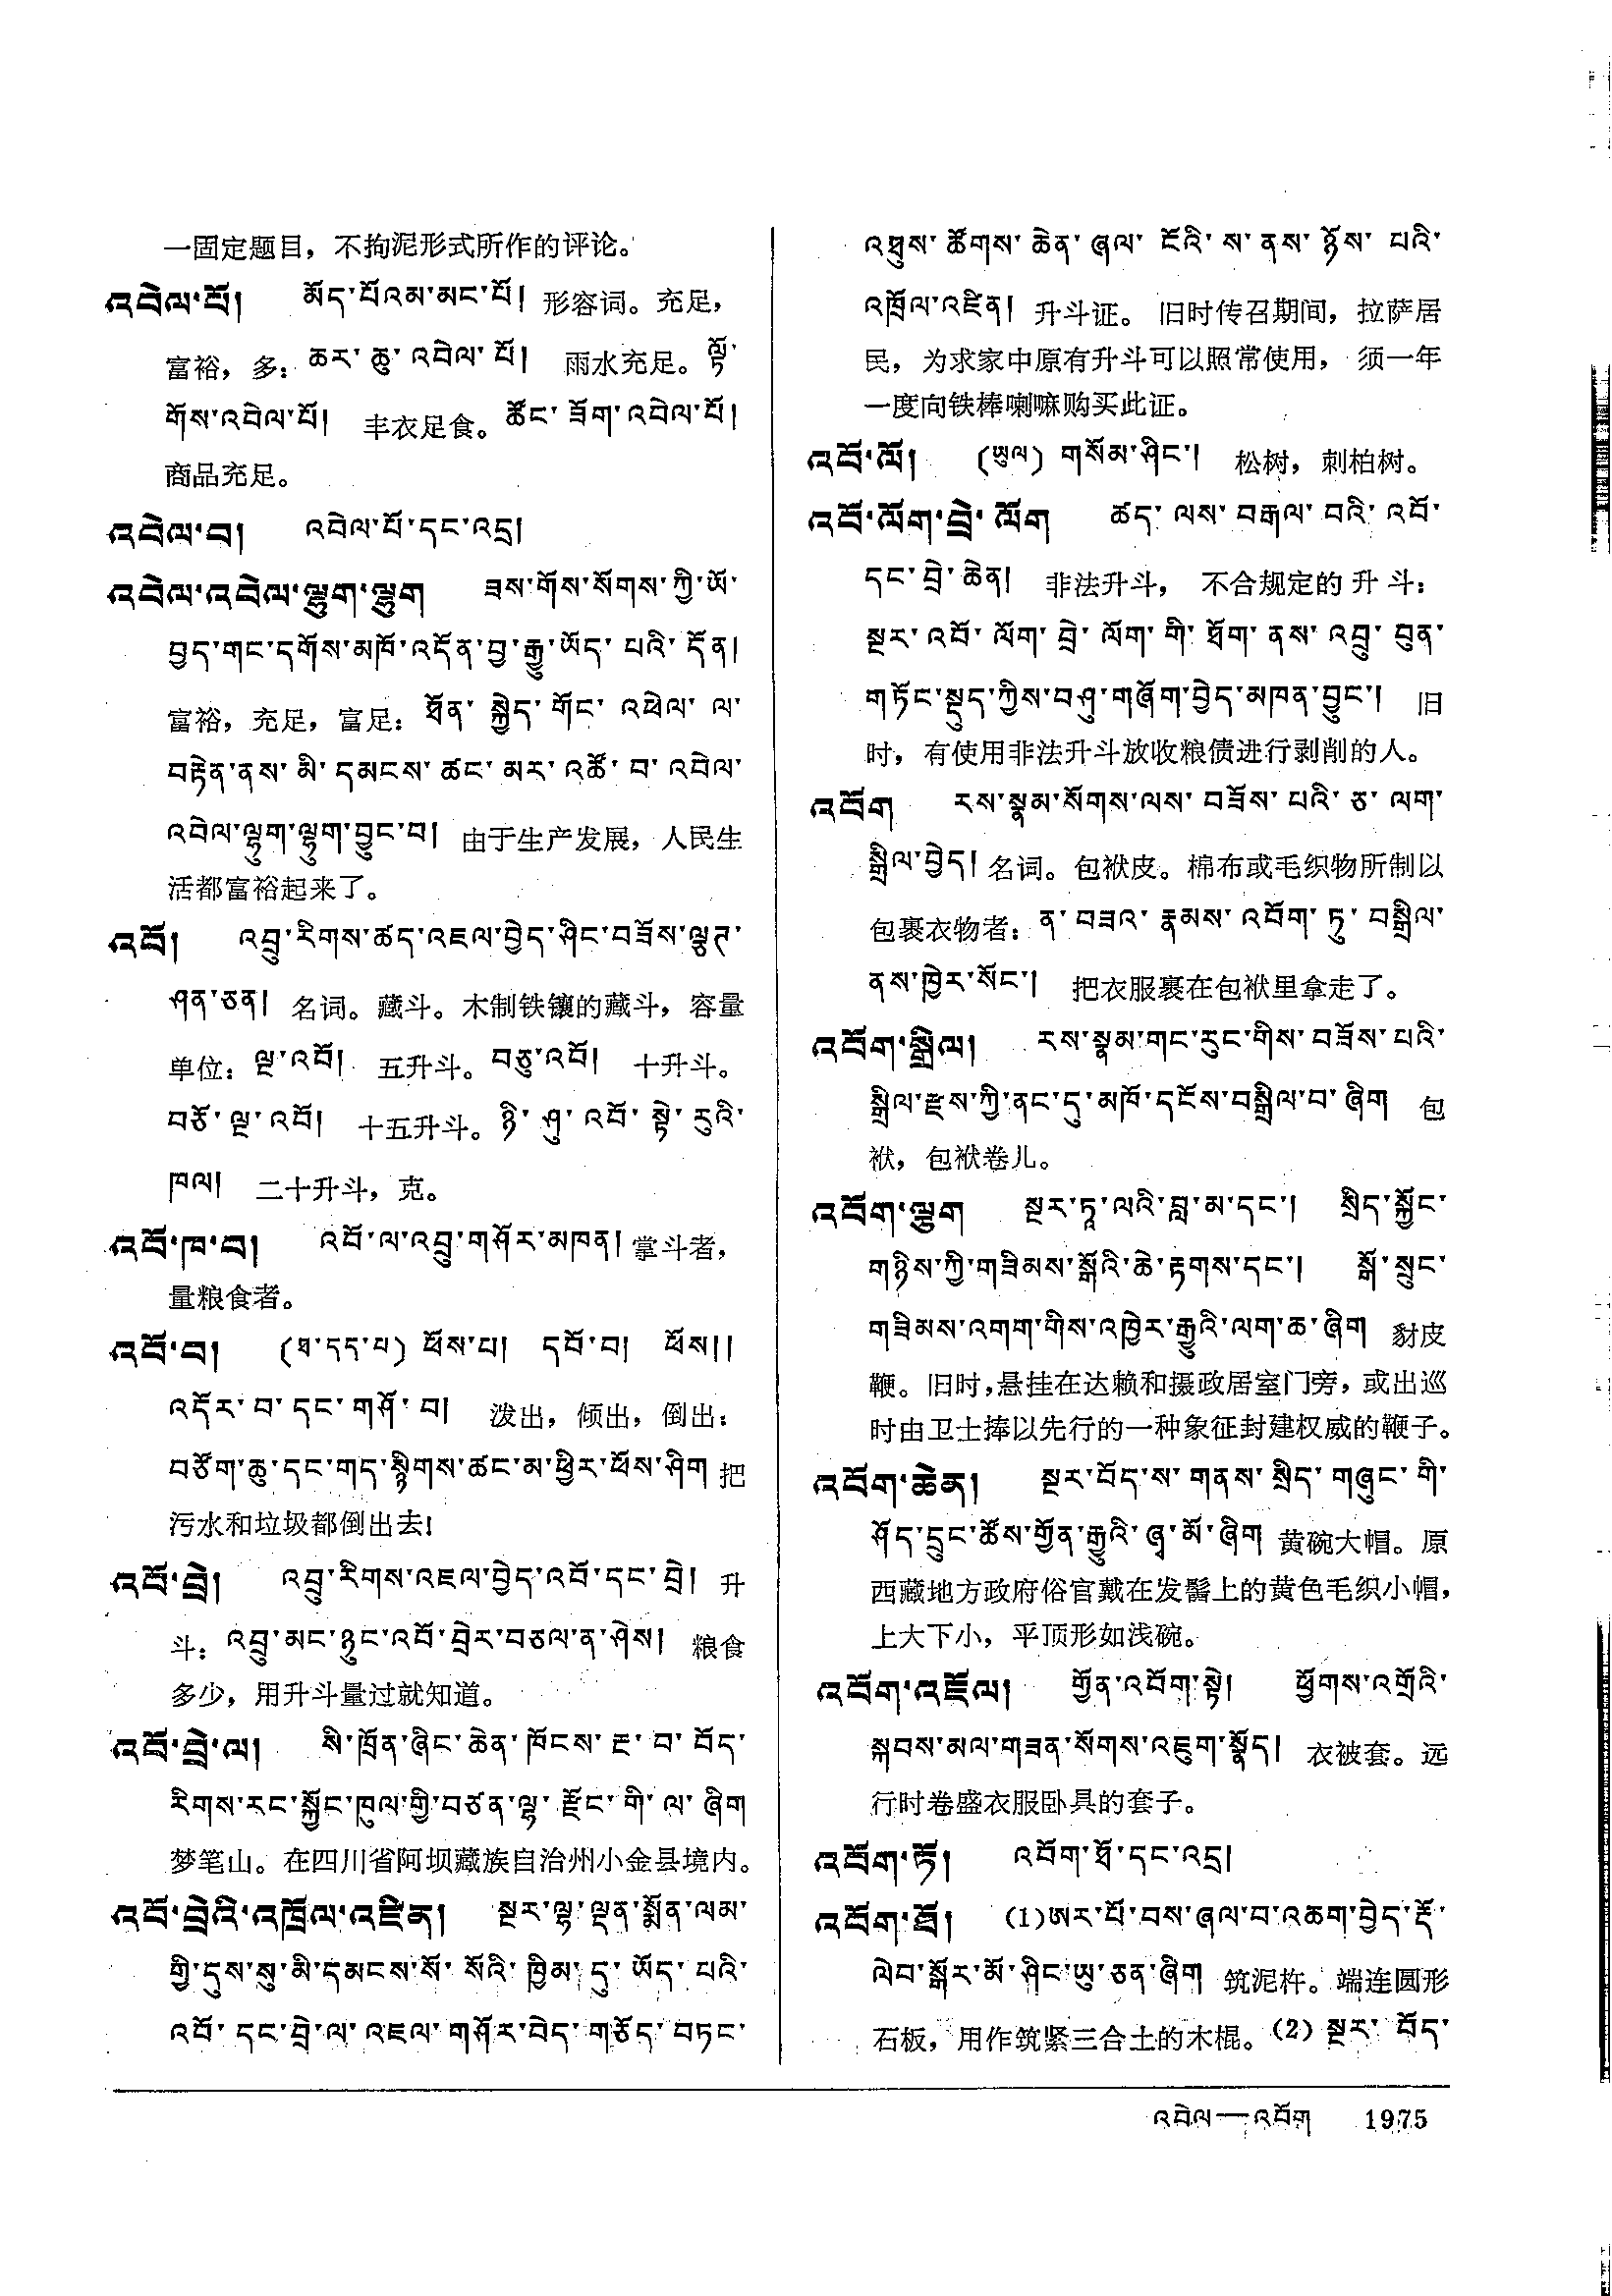 一固定题目，不拘泥形式所作的评论。
འབེལ་པོ། མོད་པོའམ་མང་པོ། 形容词。充足，
富裕，多：ཆར་ཆུ་འབེལ་པོ། 雨水充足。ལྟོ་
གོས་འབེལ་པོ། 丰衣足食。ཚོང་ཟོག་འབེལ་པོ།
商品充足。
འབེལ་བ། འབེལ་པོ་དང་འདྲ།
འབེལ་འབེལ་ལྷུག་ལྷུག ཟས་གོས་སོགས་ཀྱི་ཡོ་
བྱད་གང་དགོས་མཁོ་འདོན་བྱ་རྒྱུ་ཡོད་པའི་དོན།
富裕，充足，富足：ཐོན་སྐྱེད་གོང་འཕེལ་ལ་
བརྟེན་ནས་མི་དམངས་ཚང་མར་འཚོ་བ་འབེལ་
འབེལ་ལྷུག་ལྷུག་བྱུང་བ། 由于生产发展，人民生
活都富裕起来了。
འབོ། འབྲུ་རིགས་ཚད་འཇལ་བྱེད་ཤིང་བཟོས་ལྕཊ་
ཤན་ཅན། 名词。藏斗。木制铁镶的藏斗，容量
单位：ལྔ་འབོ། 五升斗。བཅུ་འབོ། 十升斗。
བཅོ་ལྔ་འབོ། 十五升斗。ཉི་ཤུ་འབོ་སྟེ་རུའི་
ཁལ། 二十升斗，克。
འབོ་ཁ་བ། འབོ་ལ་འབྲུ་གཤོར་མཁན། 掌斗者，
量粮食者。
འབོ་བ། (ཐ་དད་པ) ཕོས་པ། དབོ་བ། ཕོས།།
འདོར་བ་དང་གཤོ་བ། 泼出，倾出，倒出：
བཙོག་ཆུ་དང་གད་སྙིགས་ཚང་མ་ཕྱིར་ཕོས་ཤིག 把
污水和垃圾都倒出去！
འབོ་བྲེ། འབྲུ་རིགས་འཇལ་བྱེད་འབོ་དང་བྲེ། 升
斗：འབྲུ་མང་ཉུང་འབོ་བྲེར་བཅལ་ན་ཤེས། 粮食
多少，用升斗量过就知道。
འབོ་བྲེ་ལ། སི་ཁྲོན་ཞིང་ཆེན་ཁོངས་རྔ་བ་བོད་
རིགས་རང་སྐྱོང་ཁུལ་གྱི་བཙན་ལྷ་རྫོང་གི་ལ་ཞིག
梦笔山。在四川省阿坝藏族自治州小金县境内。
འབོ་བྲེའི་འཁྲོལ་འཛིན། སྔར་ལྷ་ལྡན་སྨོན་ལམ་
གྱི་དུས་སུ་མི་དམངས་སོ་སོའི་ཁྱིམ་དུ་ཡོད་པའི་
འབོ་དང་བྲེ་ལ་འཇལ་གཤོར་བེད་གཅོད་བཏང་
འཐུས་ཚོགས་ཆེན་ཞལ་ངོའི་ས་ནས་ཉོས་པའི་
འཁྲོལ་འཛིན། 升斗证。旧时传召期间，拉萨居
民，为求家中原有升斗可以照常使用，须一年
一度向铁棒喇嘛购买此证。
འབོ་ལོ། (ཡུལ) གསོམ་ཤིང་། 松树，刺柏树。
འབོ་ལོག་བྲེ་ལོག ཚད་ལས་བརྒལ་བའི་འབོ་
དང་བྲེ་ཆེན། 非法升斗，不合规定的升斗：
སྔར་འབོ་ལོག་བྲེ་ལོག་གི་ཐོག་ནས་འབྲུ་བུན་
གཏོང་སྡུད་ཀྱིས་བཤུ་གཞོག་བྱེད་མཁན་བྱུང་། 旧
时，有使用非法升斗放收粮债进行剥削的人。
འབོག རས་སྣམ་སོགས་ལས་བཟོས་པའི་ཅ་ལག་
སྒྲིལ་བྱེད། 名词。包袱皮。棉布或毛织物所制以
包裹衣物者：ན་བཟའ་རྣམས་འབོག་ཏུ་བསྒྲིལ་
ནས་ཁྱེར་སོང་། 把衣服裹在包袱里拿走了。
འབོག་སྒྲིལ། རས་སྣམ་གང་རུང་གིས་བཟོས་པའི་
སྒྲིལ་རྫས་ཀྱི་ནང་དུ་མཁོ་དངོས་བསྒྲིལ་བ་ཞིག 包
袱，包袱卷儿。
འབོག་ལྕག སྔར་ཏཱ་ལའི་བླ་མ་དང་། སྲིད་སྐྱོང་
གཉིས་ཀྱི་གཟིམས་སྒོའི་ཆེ་རྟགས་དང་། སྒོ་སྲུང་
གཟིམས་འགག་གིས་འཁྱེར་རྒྱུའི་ལག་ཆ་ཞིག 豺皮
鞭。旧时，悬挂在达赖和摄政居室门旁，或出巡
时由卫士捧以先行的一种象征封建权威的鞭子。
འབོག་ཆེན། སྔར་བོད་ས་གནས་སྲིད་གཞུང་གི་
ཤོད་དྲུང་ཚོས་གྱོན་རྒྱུའི་ཞྭ་མོ་ཞིག 黄碗大帽。原
西藏地方政府俗官戴在发髻上的黄色毛织小帽，
上大下小，平顶形如浅碗。
འབོག་འཇོལ། གྱོན་འབོག་སྟེ། ཕྱོགས་འགྲོའི་
སྐབས་མལ་གཟན་སོགས་འཇུག་སྣོད། 衣被套。远
行时卷盛衣服卧具的套子。
འབོག་ཏོ། འབོག་ཐོ་དང་འདྲ།
འབོག་ཐོ། (1)ཨར་པོ་བས་ཞལ་བ་འཆག་བྱེད་རྡོ་
ལེབ་སྒོར་མོ་ཤིང་ཡུ་ཅན་ཞིག 筑泥杵。端连圆形
石板，用作筑紧三合土的木棍。(2) སྔར་བོད་
འབེལ—འབོག 1975